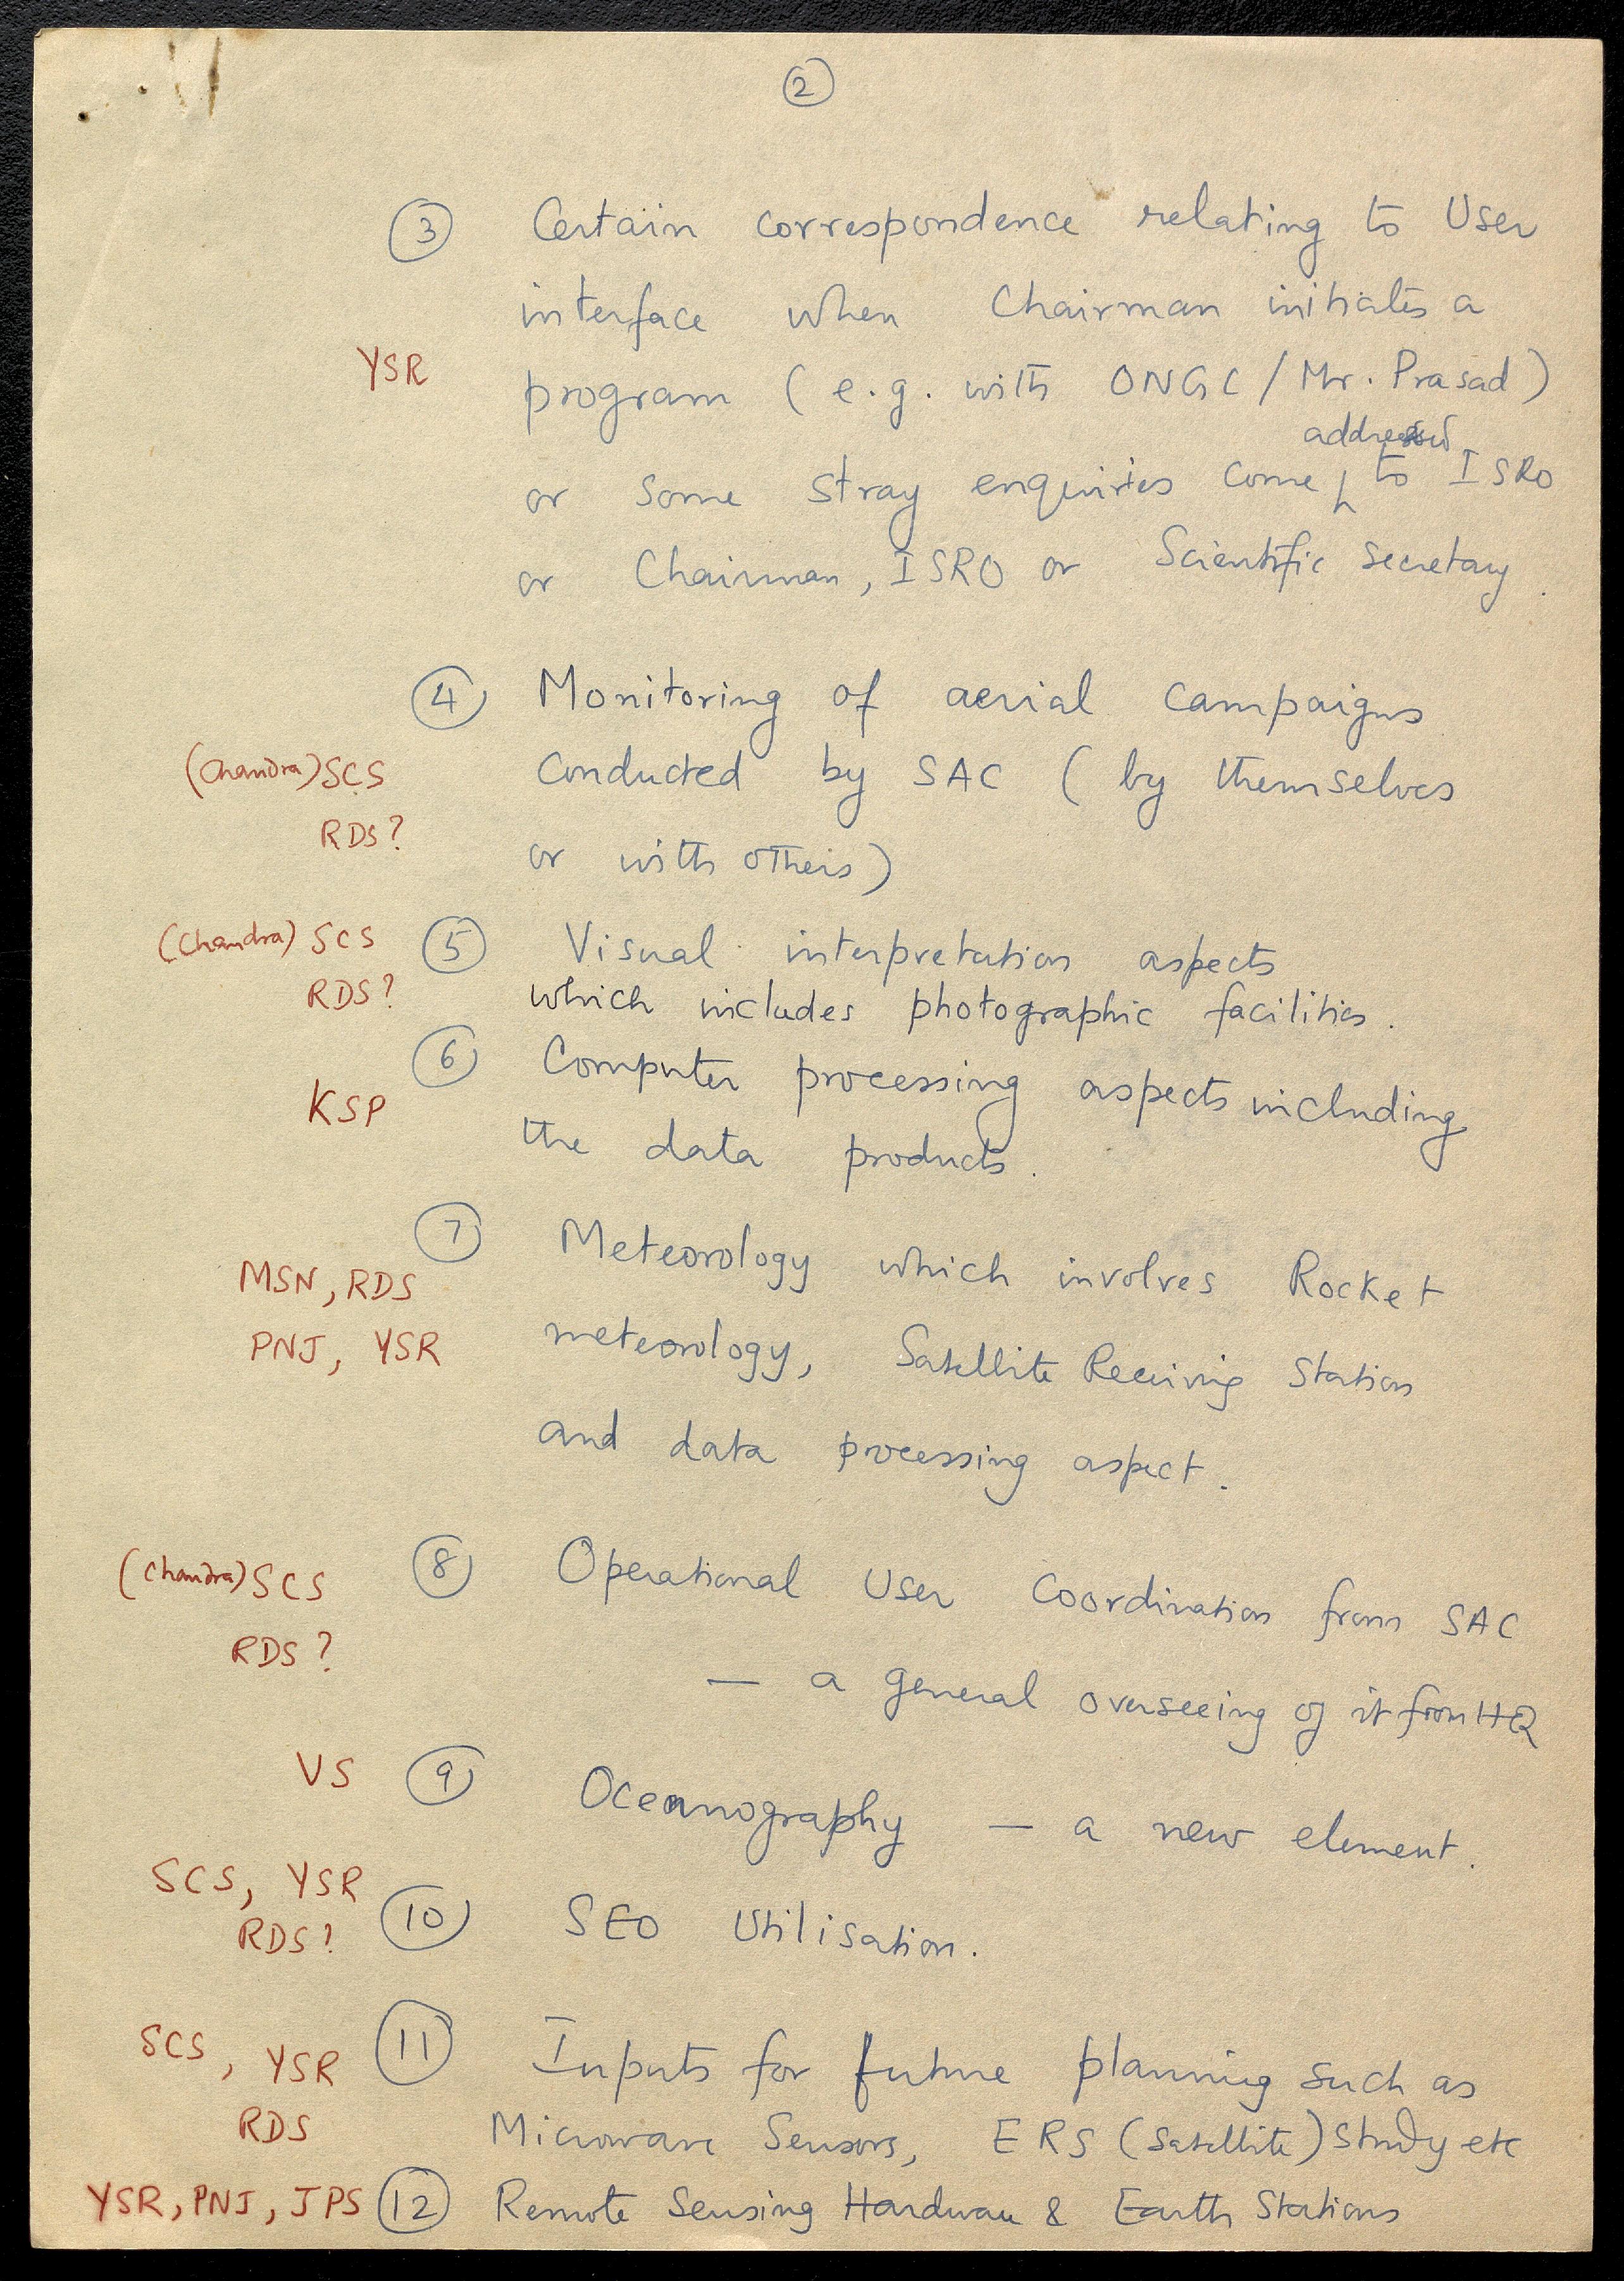 2
3 Certain correspondence relating to User
interface when Chairman initiates a
YSR program (e.g. with ONGC / Mr. Prasad)
addressed
or some stray enquiries come to ISRO
or Chairman, ISRO or Scientific Secretary.
4 Monitoring of aerial campaigns
(Chandra) SCS conducted by SAC (by themselves
RDS? or with others)
(Chandra) SCS 5 Visual interpretation aspects
RDS? which includes photographic facilities.
6 Computer processing aspects including
KSP the data products.
7 Meteorology which involves Rocket
MSN, RDS
PNJ, YSR meteorology, Satellite Receiving Station
and data processing aspect.
(Chandra) SCS 8 Operational User Coordination from SAC
RDS? — a general overseeing of it from HQ
VS 9 Oceanography — a new element.
SCS, YSR 10 SEO Utilisation.
RDS?
SCS, YSR 11 Inputs for future planning such as
RDS Microwave Sensors, ERS (Satellite) Study etc
YSR, PNJ, JPS 12 Remote Sensing Hardware & Earth Stations